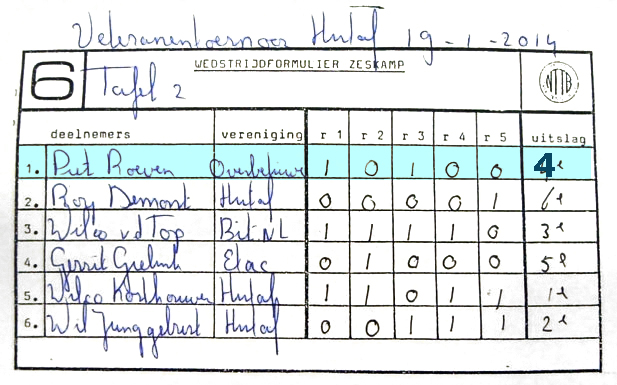 Veteranentoernooi Hutaf 19-1-2014
6 Tafel 2 WEDSTRIJDFORMULIER ZESKAMP NTTB
deelnemers vereniging r 1 r 2 r 3 r 4 r 5 uitslag
1. Piet Roeven 1 0 1 0 0 4e
2. Roy Demont Hutaf 0 0 0 0 1 6e
3. Wilco vd Top Bit NL 1 1 1 1 0 3e
4. Gerrit Etac 0 1 0 0 0 5e
5. Wilco Korthouwer Hutaf 1 1 0 1 1 1e
6. Wil Junggeburt Hutaf 0 0 1 1 1 2e